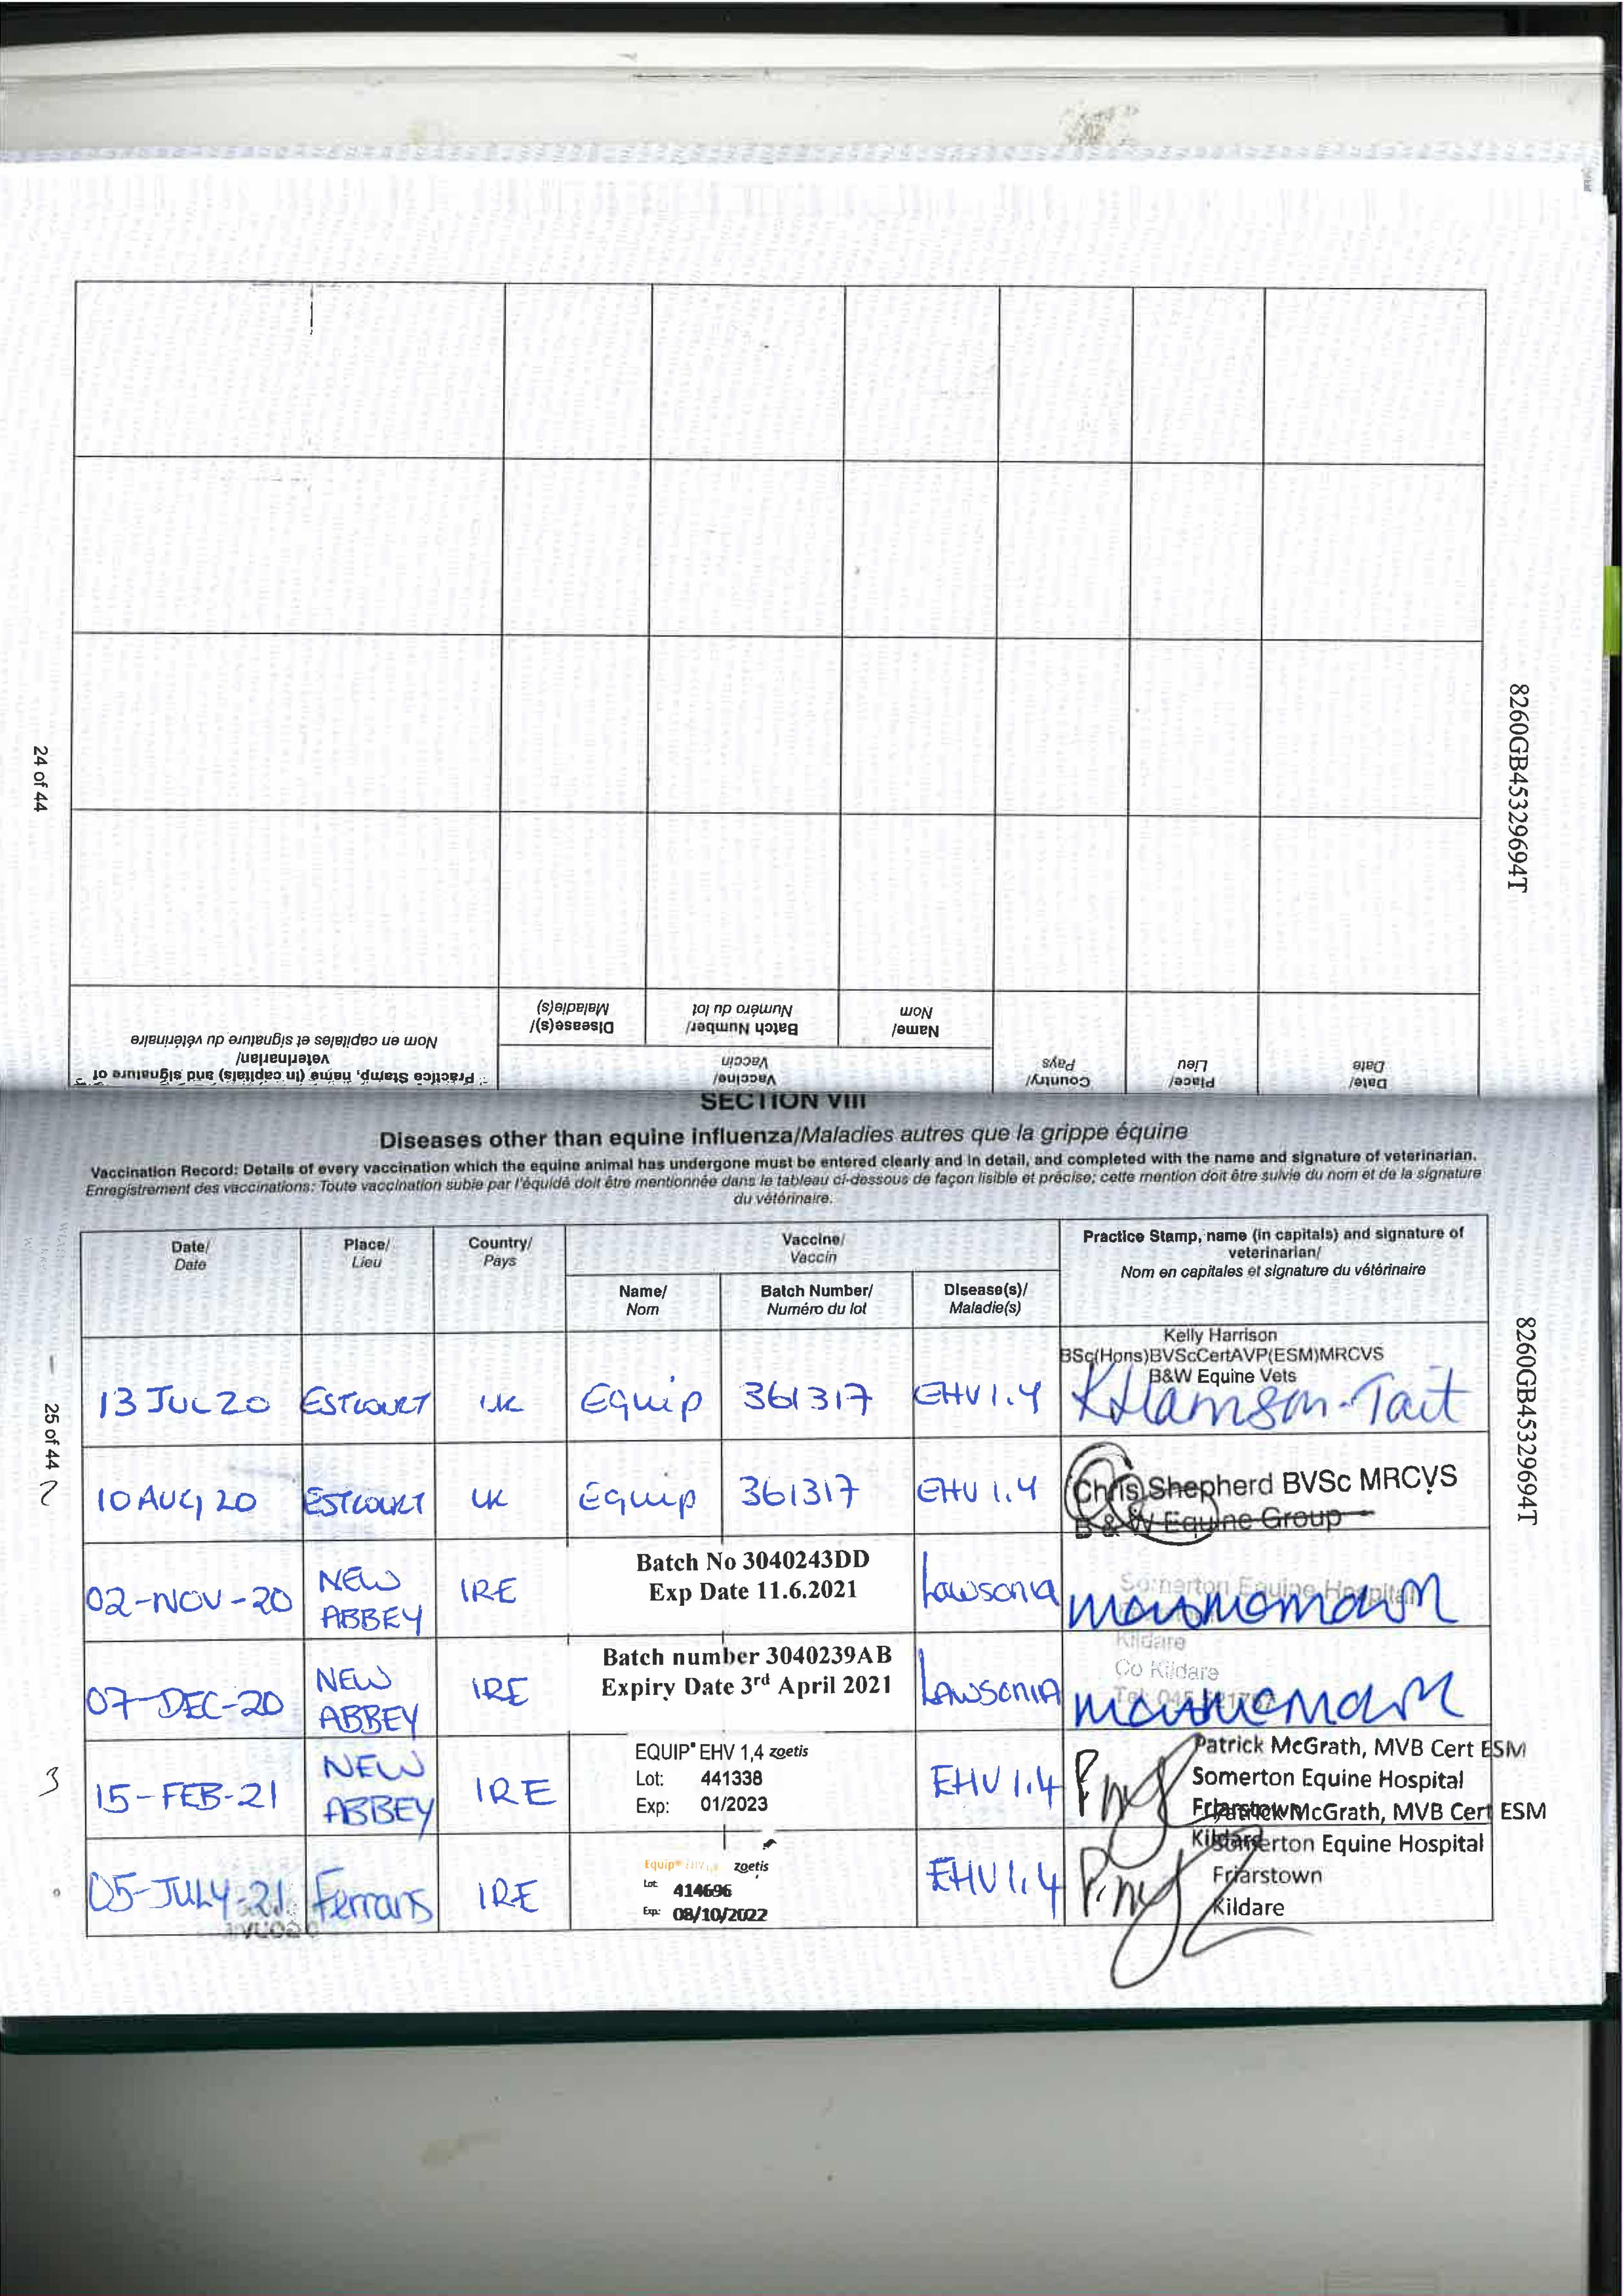 24 of 44
8260GB45329694T
Date/ Date
Place/ Lieu
Country/ Pays
Vaccine/ Vaccin
Name/ Nom
Batch Number/ Numéro du lot
Disease(s)/ Maladie(s)
Practice Stamp, name (in capitals) and signature of
veterinarian/
Nom en capitales et signature du vétérinaire
SECTION VIII
Diseases other than equine influenza/Maladies autres que la grippe équine
Vaccination Record: Details of every vaccination which the equine animal has undergone must be entered clearly and in detail, and completed with the name and signature of veterinarian.
Enregistrement des vaccinations: Toute vaccination subie par l'équidé doit être mentionnée dans le tableau ci-dessous de façon lisible et précise; cette mention doit être suivie du nom et de la signature
du vétérinaire.
Date/ Date
Place/ Lieu
Country/ Pays
Vaccine/ Vaccin
Practice Stamp, name (in capitals) and signature of
veterinarian/
Nom en capitales et signature du vétérinaire
Name/ Nom
Batch Number/ Numéro du lot
Disease(s)/ Maladie(s)
25 of 44
8260GB45329694T
Kelly Harrison
BSc(Hons)BVScCertAVP(ESM)MRCVS
B&W Equine Vets
13 JUL 20 ESTCOURT UK Equip 361317 EHV 1.4 KHarrison-Tait
2
10 AUG 20 ESTCOURT UK Equip 361317 EHV 1.4
Chris Shepherd BVSc MRCVS
B & W Equine Group
02-NOV-20 NEW ABBEY IRE
Batch No 3040243DD
Exp Date 11.6.2021
Lawsonia
Somerton Equine Hospital
07-DEC-20 NEW ABBEY IRE
Batch number 3040239AB
Expiry Date 3rd April 2021
LAWSONIA
Kildare
Co Kildare
3
15-FEB-21 NEW ABBEY IRE
EQUIP® EHV 1,4 zoetis
Lot: 441338
Exp: 01/2023
EHV 1.4
Patrick McGrath, MVB Cert ESM
Somerton Equine Hospital
Friarstown
Kildare
05-JULY-21 Ferrans IRE
Equip® EHV 1,4 zoetis
Lot: 414696
Exp: 08/10/2022
EHV 1.4
Patrick McGrath, MVB Cert ESM
Somerton Equine Hospital
Friarstown
Kildare